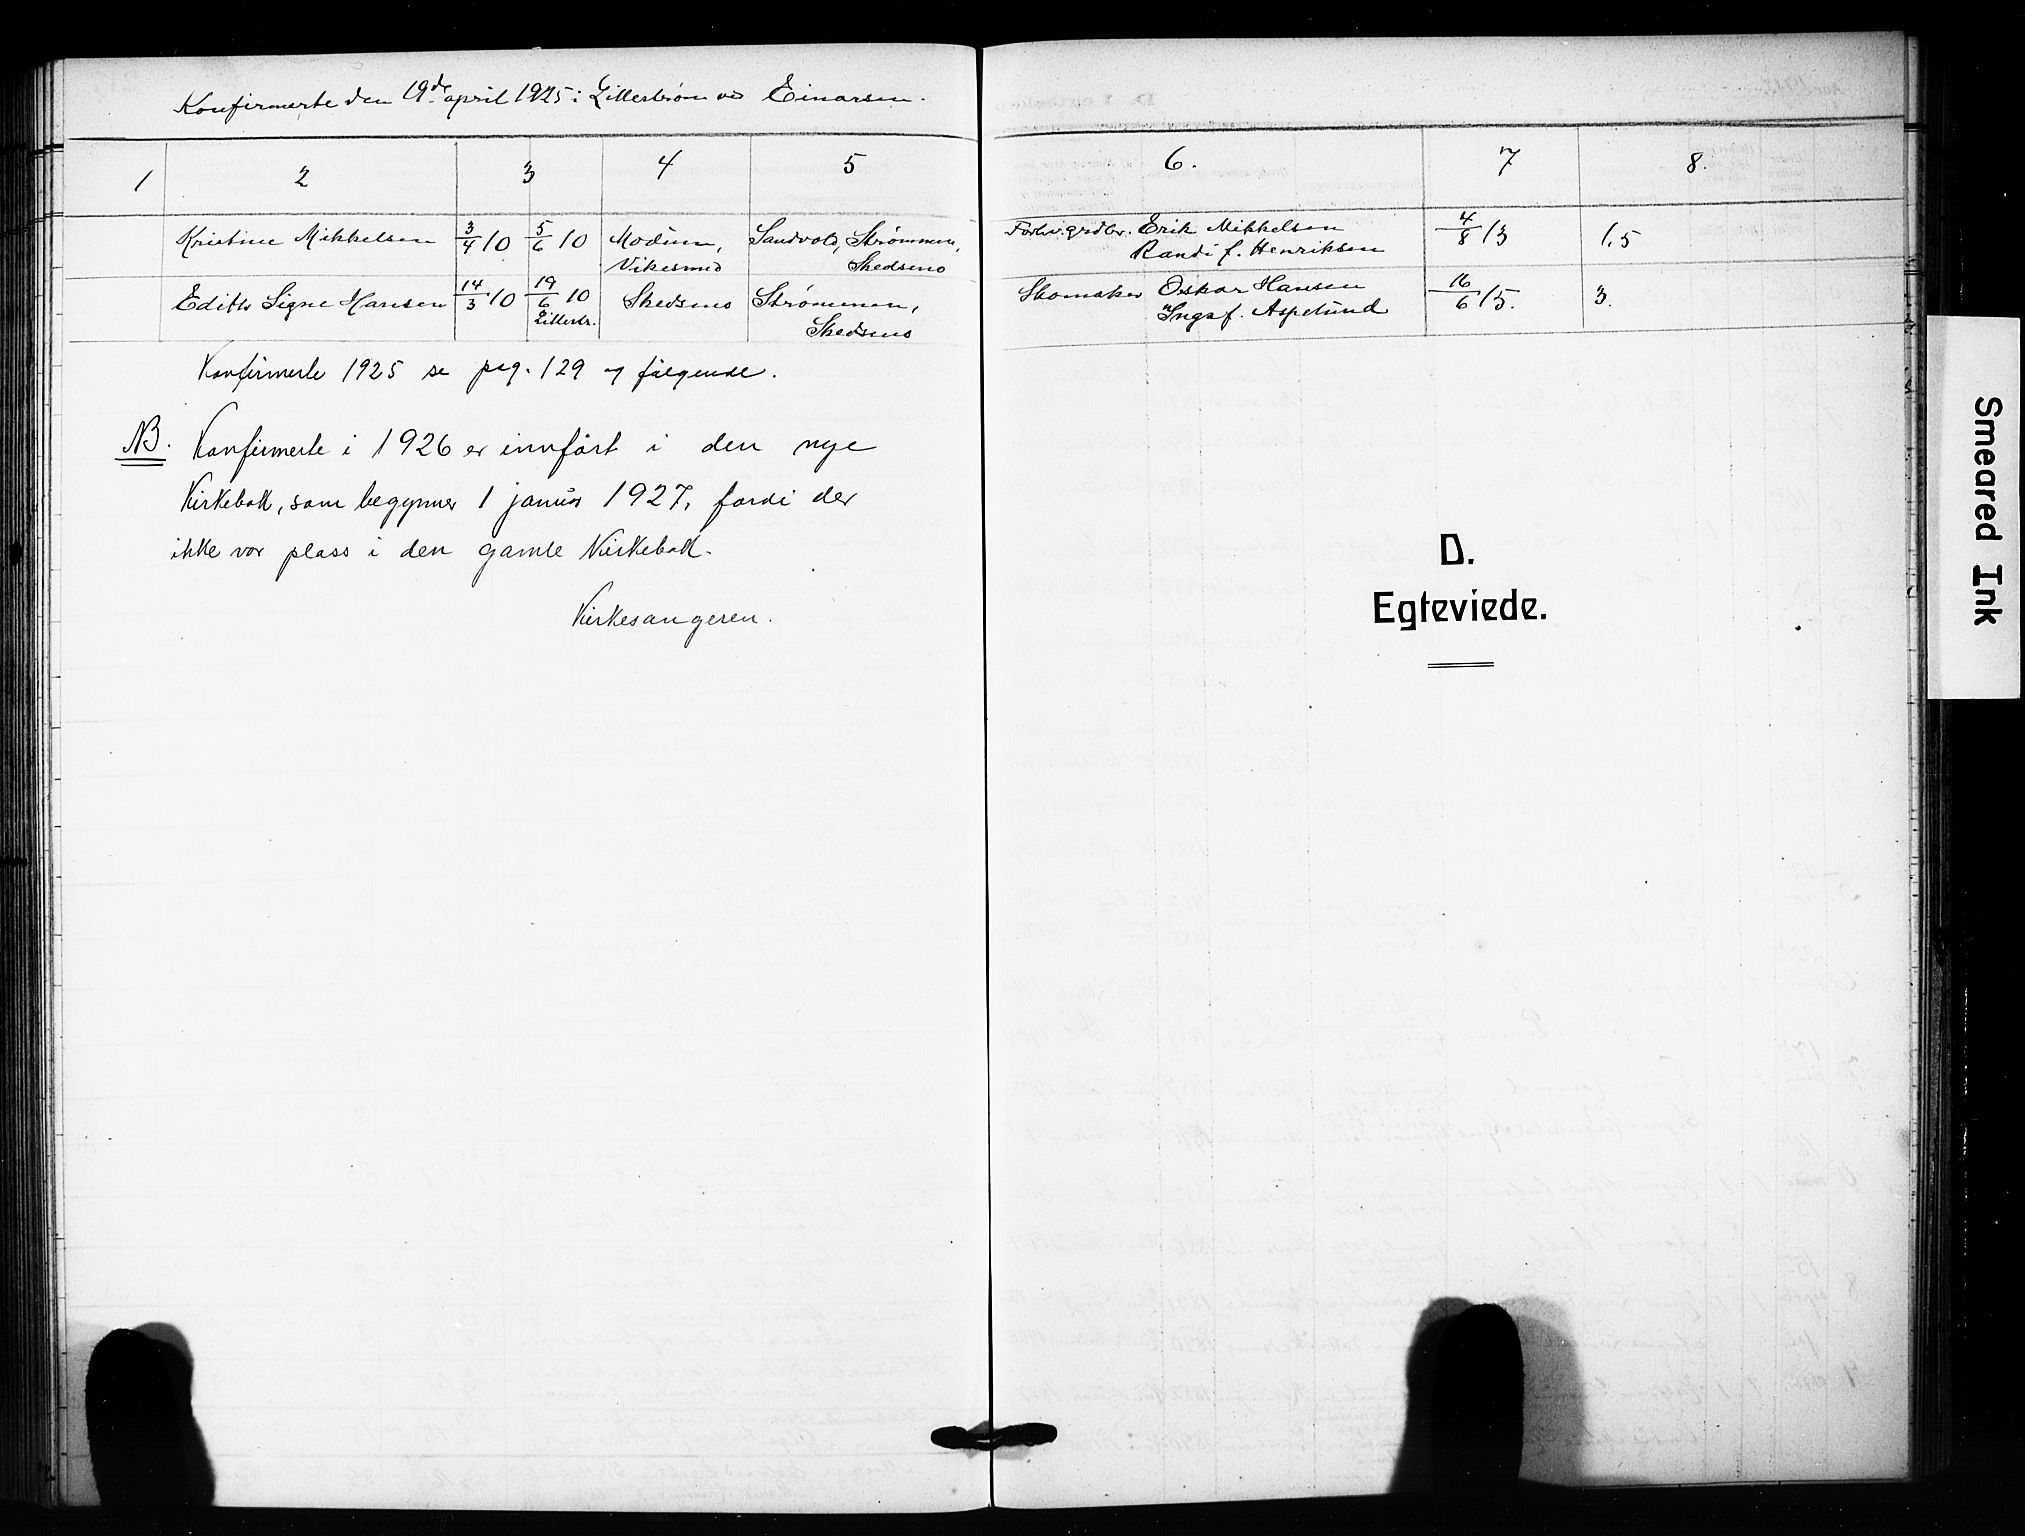 Konfirmerte den 19de april 1925 i Lillestrøm ved Einarsen.
1 2 3 4 5
Kristine Mikkelsen 3/4 10 5/6 10 Modum, Sandvold, Strømmen,
Vikesund Skedsmo
Edith Signe Hansen 14/3 10 19/6 10 Skedsmo Strømmen,
Lillestr. Skedsmo
Konfirmerte 1925 se pag. 129 og følgende.
NB. Konfirmerte i 1926 er innført i den nye
Kirkebok, som begynner 1 januar 1927, fordi der
ikke var plass i den gamle Kirkebok.
Kirkesangeren.
6. 7 8.
Forhv. grdbr. Erik Mikkelsen 4/8 13 1,5
Randi f. Henriksen
Skomaker Oskar Hansen 16/6 15. 3.
Inga f. Aspelund
D.
Egteviede.
Smeared Ink